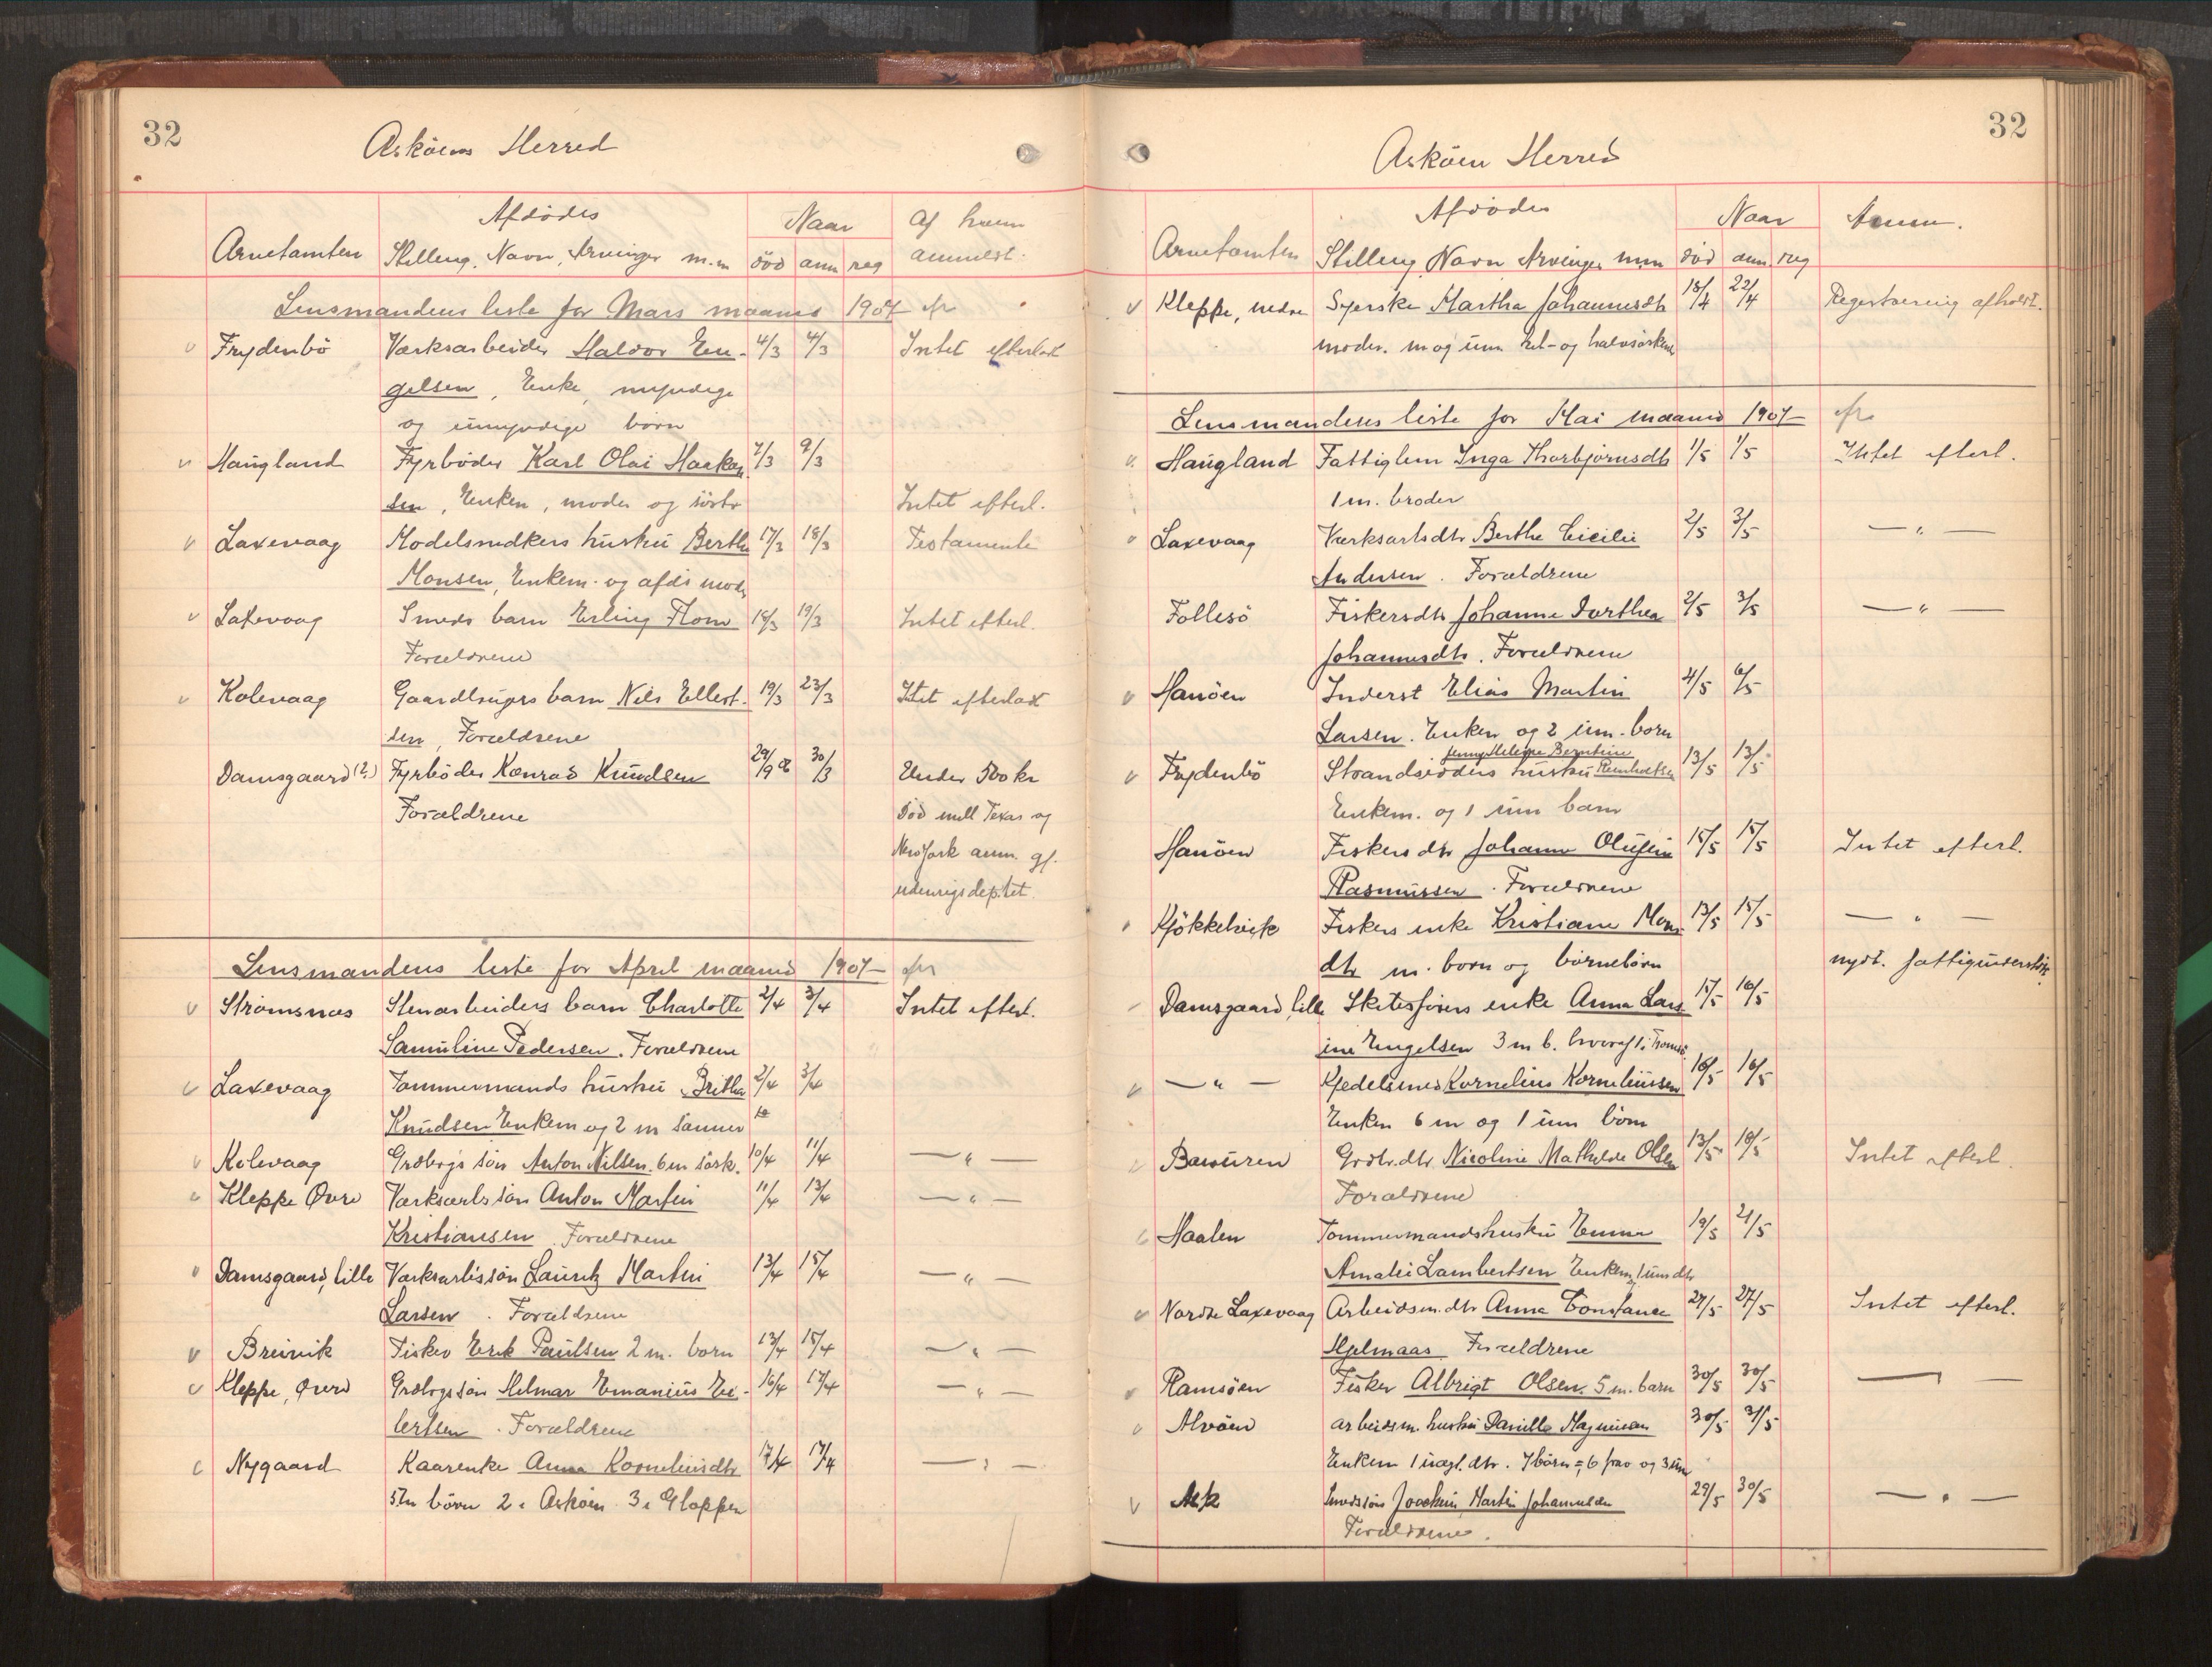 32
Askøens Herred
Afdødes
Naar
Af hvem
Arnestamten
Stilling, Navn, Arvinger m.m
død
anm
reg
anmeldt.
Lensmandens liste for Mars maaned 1907
Frydenbö Værksarbeider Haldor En- 4/3 4/3 Intet efterlat
gelsen, Enke, myndige
og umyndige børn
Haugland Fyrbøder Karl Olai Haakon 7/3 9/3
sen, Enken, moder og søstr Intet efterl.
Laxevaag Modelsnedkers hustru Berthe 17/3 18/3 Testamente
Monsen, Enkem. og afdø mods
Laxevaag Smeds barn Erling Flom 18/3 19/3 Intet efterl.
Forældrene
Kolevaag Gaardbrugers barn Nils Ellert- 19/3 23/3 Intet efterlat
sen, Forældrene
Damsgaard (?) Fyrbøder Konrad Knudsen 29/9 06 30/3 Under 500 kr
Forældrene Död mell Texas og
New York anm. gj.
udenrigsdeptet.
Lensmandens liste for April maaned 1907
Strømsnæs Stenarbeiders barn Charlotte 2/4 3/4 Intet efterl.
Samuline Pedersen. Forældrene
Laxevaag Tømmermands hustru Britha 2/4 3/4
Knudsen Enkem og 2 m sønner
Kolevaag Grdbrgs søn Anton Nilsen. 6 m søsk. 10/4 11/4 — " —
Kleppe Øvre Værksarbs søn Anton Martin 11/4 13/4 — " —
Kristiansen. Forældrene
Damsgaard, lille Værksarbs søn Lauritz Martin 13/4 15/4 — " —
Larsen. Forældrene
Breivik Fisker Erik Paulsen 2 m. børn 13/4 15/4 — " —
Kleppe, Øvre Grdbrgs søn Helmar Emanius Ei- 16/4 17/4 — " —
lertsen. Forældrene
Nygaard Kaarenke Anna Korneliusdtr 17/4 17/4 — " —
5 m børn 2 i Askøen 3 i Gloppen
32
Askøen Herred
Afdødes
Naar
Anm.
Arnestamten
Stilling Navn Arvinger m.m
død
anm.
reg
Kleppe, nedre Syerske Martha Johannesdtr 18/4 22/4 Registrering afholdt.
moder. m og um hel- og halvsøskende
Lensmandens liste for Mai maaned 1907
Haugland Fattiglem Inga Thorbjørnsdtr 1/5 1/5 Intet efterl.
1 m. broder
Laxevaag Værksarbs dtr Berthe Cicilie 2/5 3/5 — " —
Andersen. Forældrene
Follesö Fiskersdtr Johanne Dorthea 2/5 3/5 — " —
Johannesdtr. Forældrene
Hanöen Inderst Elias Martin 4/5 6/5
Larsen. Enken og 2 um. børn
Jenny Helene Berntine
Frydenbö Strandsidders hustru Reinholtsen 13/5 13/5
Enkem. og 1 um barn
Hanöen Fiskers dtr Johanne Olufine 15/5 15/5 Intet efterl.
Rasmussen. Forældrene
Kjökkelvik Fiskers enke Kristiane Mons 13/5 15/5 — " —
dtr m. børn og børnebørn nydt. fattigunderstöt.
Damsgaard, lille Skibsførers enke Anna Lars- 15/5 16/5
ine Engelsen 3 m b. hvoraf 1 i Tromsö.
— " — Kjedelsmed Kornelius Korneliussen 16/5 16/5
Enken 6 m og 1 um børn
Grdbr. dtr. Nicoline Mathilde Olsen 13/5 18/5 Intet efterl.
Forældrene
Haalen Tømmermandshustru Emma 19/5 21/5
Amalie Lambertsen Enkem, 1 um dtr
Nordre Laxevaag Arbeidsm. dtr Anna Constance 27/5 27/5 Intet efterl.
Hjelmaas Forældrene
Ramsöen Fisker Albrigt Olsen. 5 m. barn 30/5 30/5 — " —
Alvöen arbeidsm. hustru Danille Magnussen 30/5 31/5
Enkem 1 uægt. dtr. 7 børn = 6 og 3 um
Ask Smedssøn Joachim Martin 29/5 30/5 — " —
Forældrene.